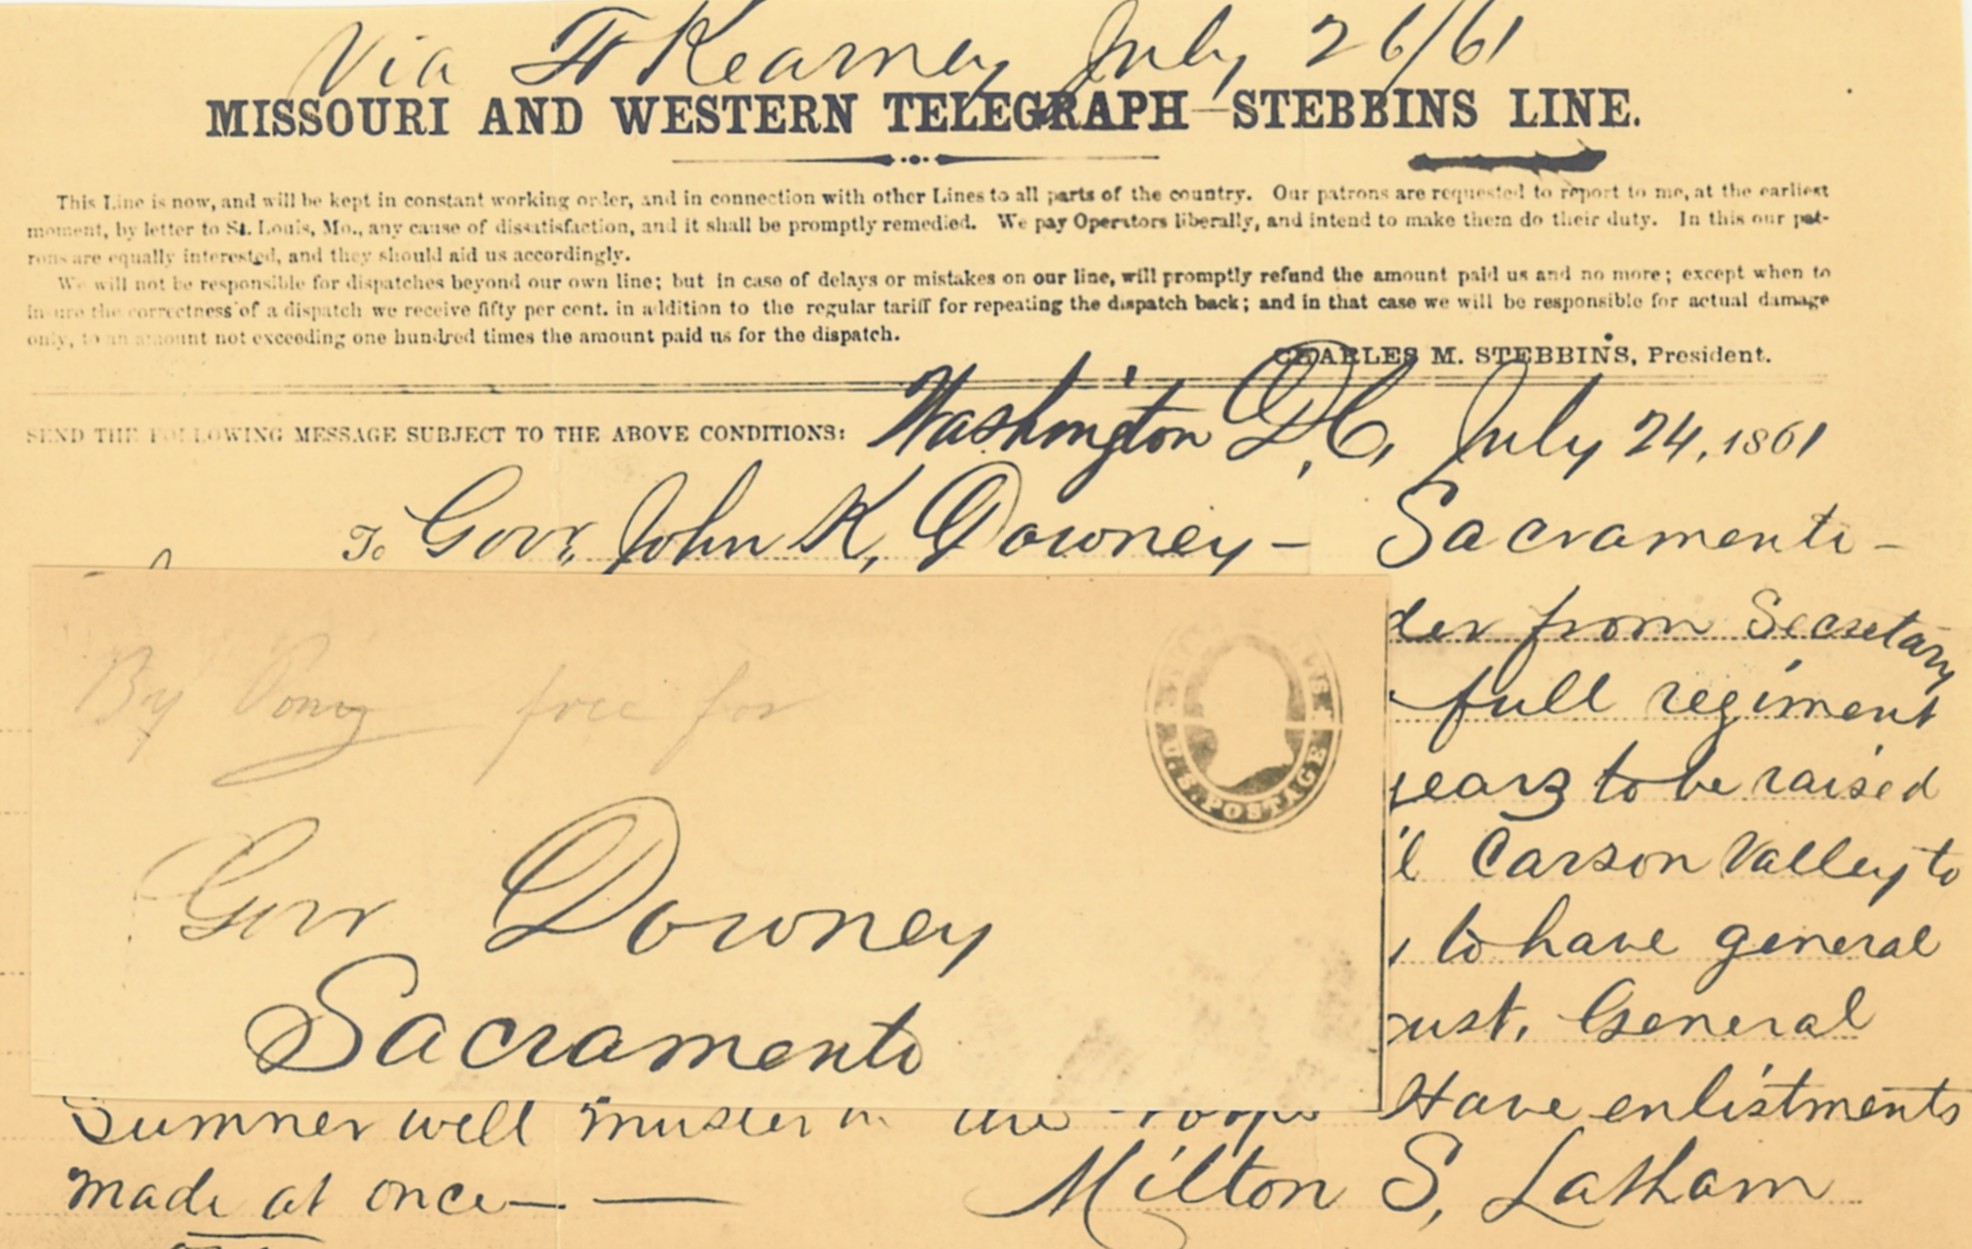 Via Ft Kearney July 26/61
MISSOURI AND WESTERN TELEGRAPH—STEBBINS LINE.
This Line is now, and will be kept in constant working order, and in connection with other Lines to all parts of the country. Our patrons are requested to report to me, at the earliest
moment, by letter to St. Louis, Mo., any cause of dissatisfaction, and it shall be promptly remedied. We pay Operators liberally, and intend to make them do their duty. In this our pat-
rons are equally interested, and they should aid us accordingly.
We will not be responsible for dispatches beyond our own line; but in case of delays or mistakes on our line, will promptly refund the amount paid us and no more; except when to
insure the correctness of a dispatch we receive fifty per cent. in addition to the regular tariff for repeating the dispatch back; and in that case we will be responsible for actual damage
only, to an amount not exceeding one hundred times the amount paid us for the dispatch.
CHARLES M. STEBBINS, President.
SEND THE FOLLOWING MESSAGE SUBJECT TO THE ABOVE CONDITIONS: Washington D,C, July 24, 1861
To Govr, John K, Downey – Sacramento –
der from Secretary
full regiment
years to be raised
Carson Valley to
to have general
ust. General
By Pony free for
U.S. POSTAGE
Govr Downey
Sacramento
Sumner will muster in the troops Have enlistments
made at once — Milton S, Latham